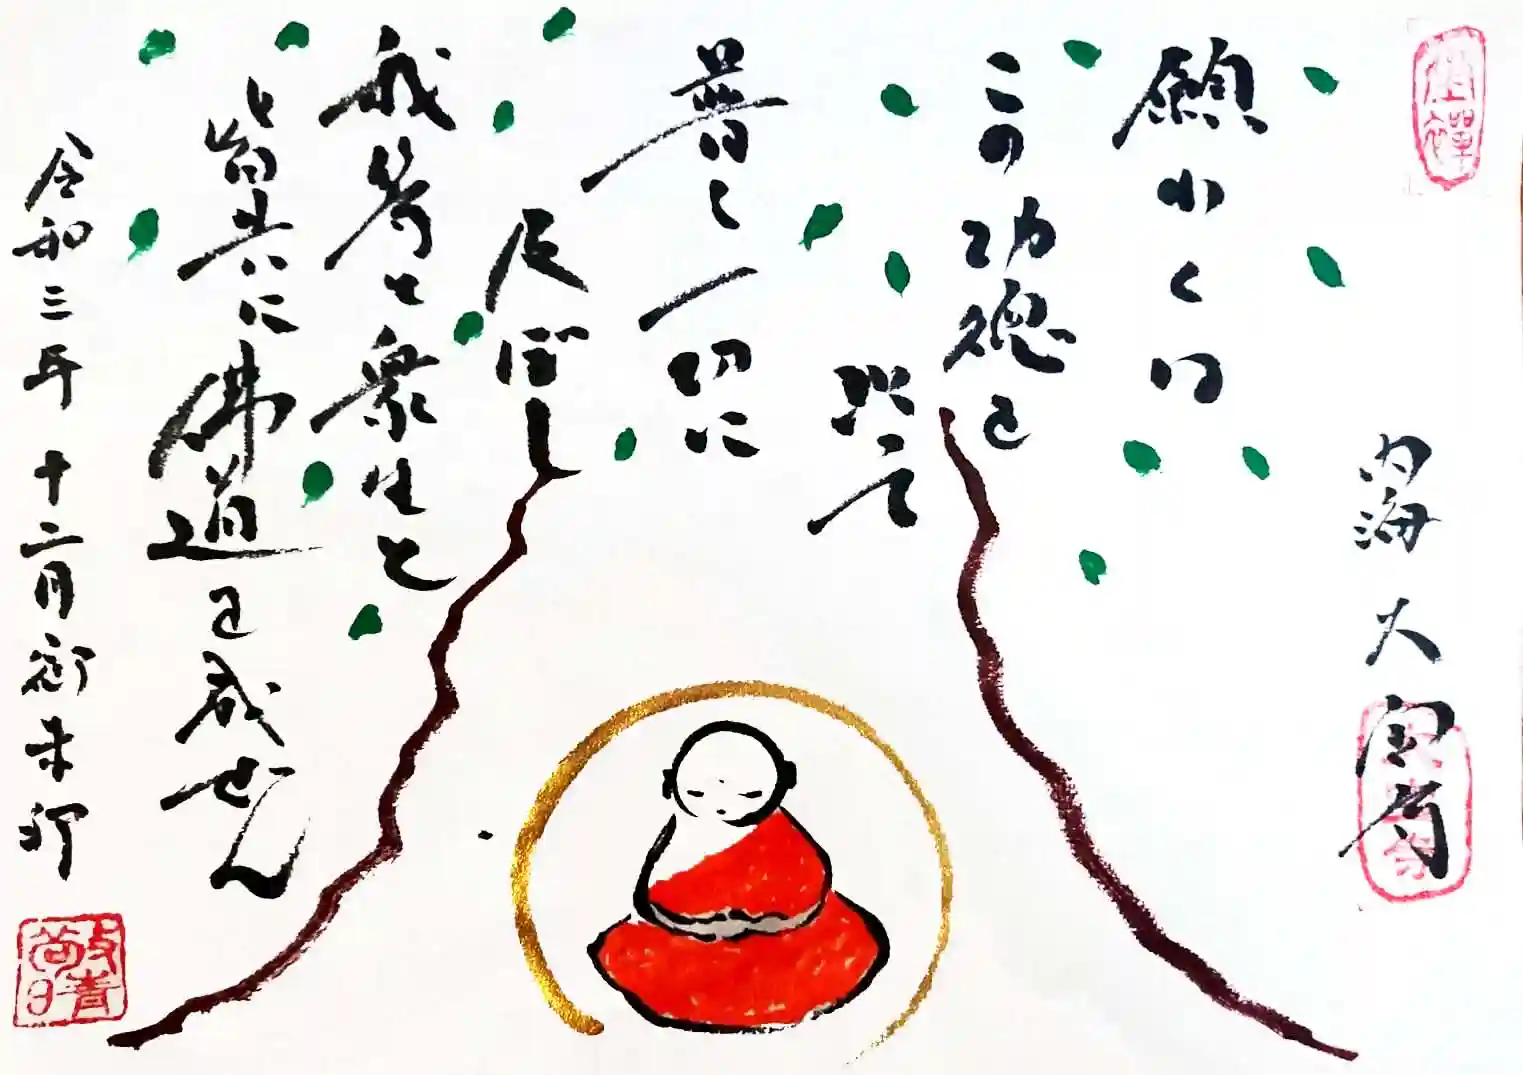 坐禅
願わくは
この功徳を
以て
普く
一切に
及ぼし
我等と衆生と
皆共に佛道を成ぜん
令和三年十二月